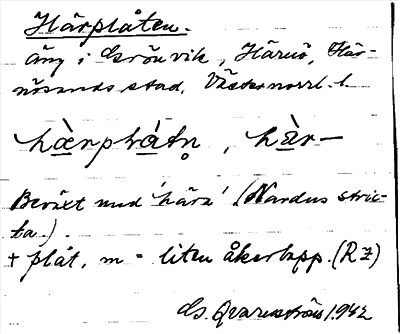 Härplåten.
äng i Grönvik, Härnö, Här-
nösands stad, Västernorrl. l.
hä̀rplåtn̥, hä̀r—
Beväxt med 'hära' (Nardus stric-
ta).
+ plåt, m = liten åkerlapp. (Rz)
Gs. Qvarnström 1942